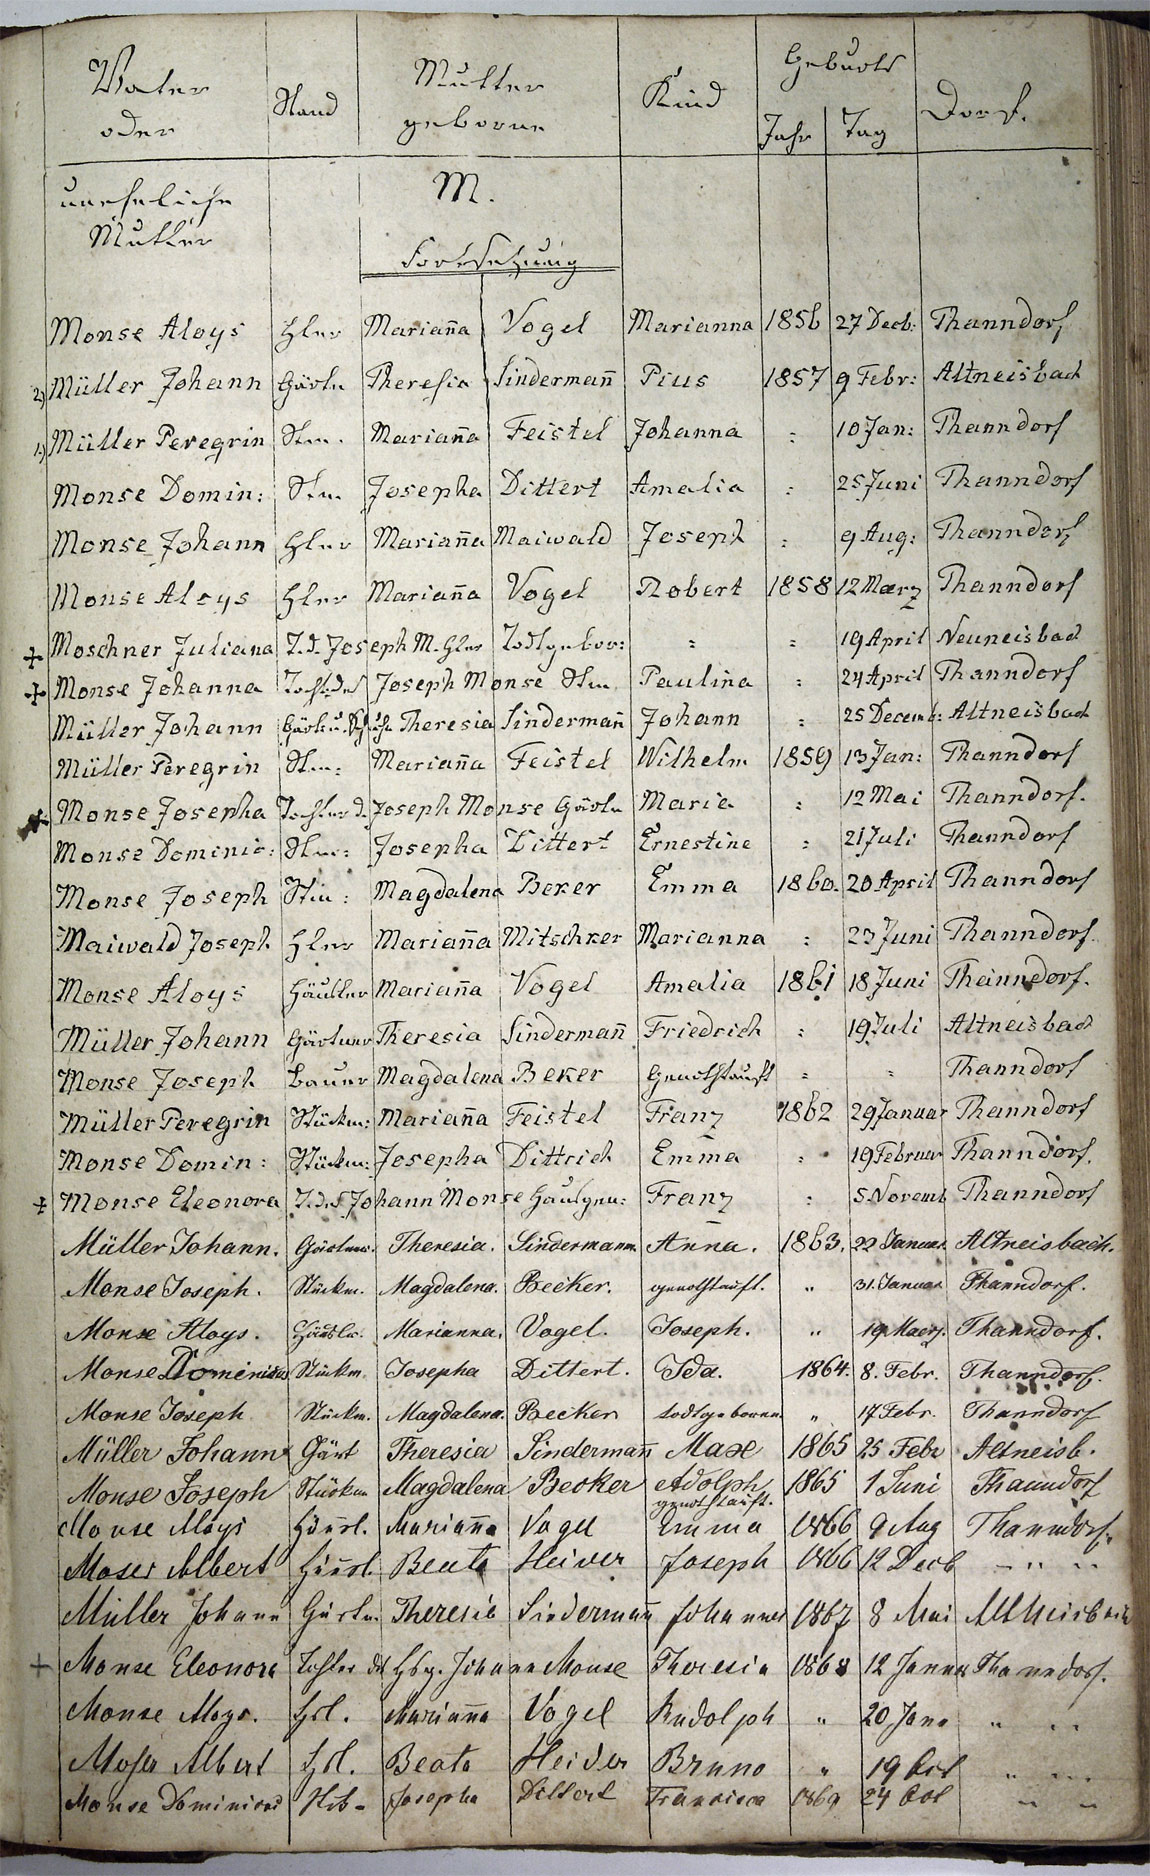 Vater oder Stand Mutter geborne Kind Geburts Jahr Tag Dorf.
uneheliche Mutter
M.
Fortsetzung
Monse Aloys Hler Mariaña Vogel Marianna 1856 27 Decb: Thanndorf
2) Müller Johann Gärtn Theresia Sindermañ Pius 1857 9 Febr: Altneisbach
1) Müller Peregrin Stm. Mariaña Feistel Johanna : 10 Jan: Thanndorf
Monse Domin: Stm. Josepha Dittert Amalia : 25 Juni Thanndorf
Monse Johann Hler Mariaña Maiwald Joseph : 9 Aug: Thanndorf
Monse Aloys Hler Mariaña Vogel Robert 1858 12 Maerz Thanndorf
+ Moschner Juliana T. d. Joseph M. Hler Todtgebor: : : 19 April Neuneisbach
+ Monse Johanna Tocht. des Joseph Monse Stm. Paulina : 24 April Thanndorf
Müller Johann Gärtn u. Theresia Sindermañ Johann : 25 Decemb: Altneisbach
Müller Peregrin Stm: Mariaña Feistel Wilhelm 1859 13 Jan: Thanndorf
+ Monse Josepha Tochter d. Joseph Monse Gärtn Maria : 12 Mai Thanndorf.
Monse Dominic: Stm: Josepha Dittert Ernestine : 21 Juli Thanndorf
Monse Joseph Stm: Magdalena Beker Emma 1860. 20 April Thanndorf
Maiwald Joseph Hler Mariaña Mitschker Marianna : 23 Juni Thanndorf
Monse Aloys Häusler Mariaña Vogel Amalia 1861 18 Juni Thanndorf.
Müller Johann Gärtner Theresia Sindermañ Friedrich : 19 Juli Altneisbach
Monse Joseph Bauer Magdalena Beker Genothtauft : : Thanndorf
Müller Peregrin Stückm: Mariaña Feistel Franz 1862 29 Januar Thanndorf
Monse Domin: Stückm: Josepha Dittrich Emma : 19 Februar Thanndorf.
+ Monse Eleonora T. des Johann Monse Hausgen: Franz : 5 Novemb Thanndorf
Müller Johann. Gärtner. Theresia. Sindermann. Anna. 1863. 22 Januar. Altneisbach.
Monse Joseph. Stückm. Magdalena. Becker. genothtauft. " 31. Januar Thanndorf.
Monse Aloys. Häusler. Marianna. Vogel. Joseph. " 19. Maerz. Thanndorf.
Monse Dominicus Stückm. Josepha Dittert. Ida. 1864. 8. Febr. Thanndorf.
Monse Joseph Stückm. Magdalena. Becker todtgeboren " 17 Febr. Thanndorf
Müller Johann Gärt Theresia Sindermañ Max 1865 25 Febr Altneisb.
Monse Joseph Stückm Magdalena Becker Adolph 1865 1 Juni Thanndorf
genothtauft.
Monse Aloys Häusl. Mariaña Vogel Emma 1866 9 Aug Thanndorf.
Moser Albert Häusl. Beata Heider Joseph 1866 12 Decb – " "
Müller Johann Gärtn. Theresia Sindermañ Johannes 1867 8 Mai Altneisbach
+ Monse Eleonora Tochter des Hsg. Johann Monse Theresia 1868 12 Januar Thanndorf.
Monse Aloys. Hsl. Mariaña Vogel Rudolph " 20 Jana " "
Moser Albert Hsl. Beata Heider Bruno " 19 Oct " "
Monse Dominicus Stb – Josepha Dittert Francisca 1869 24 Oct " "